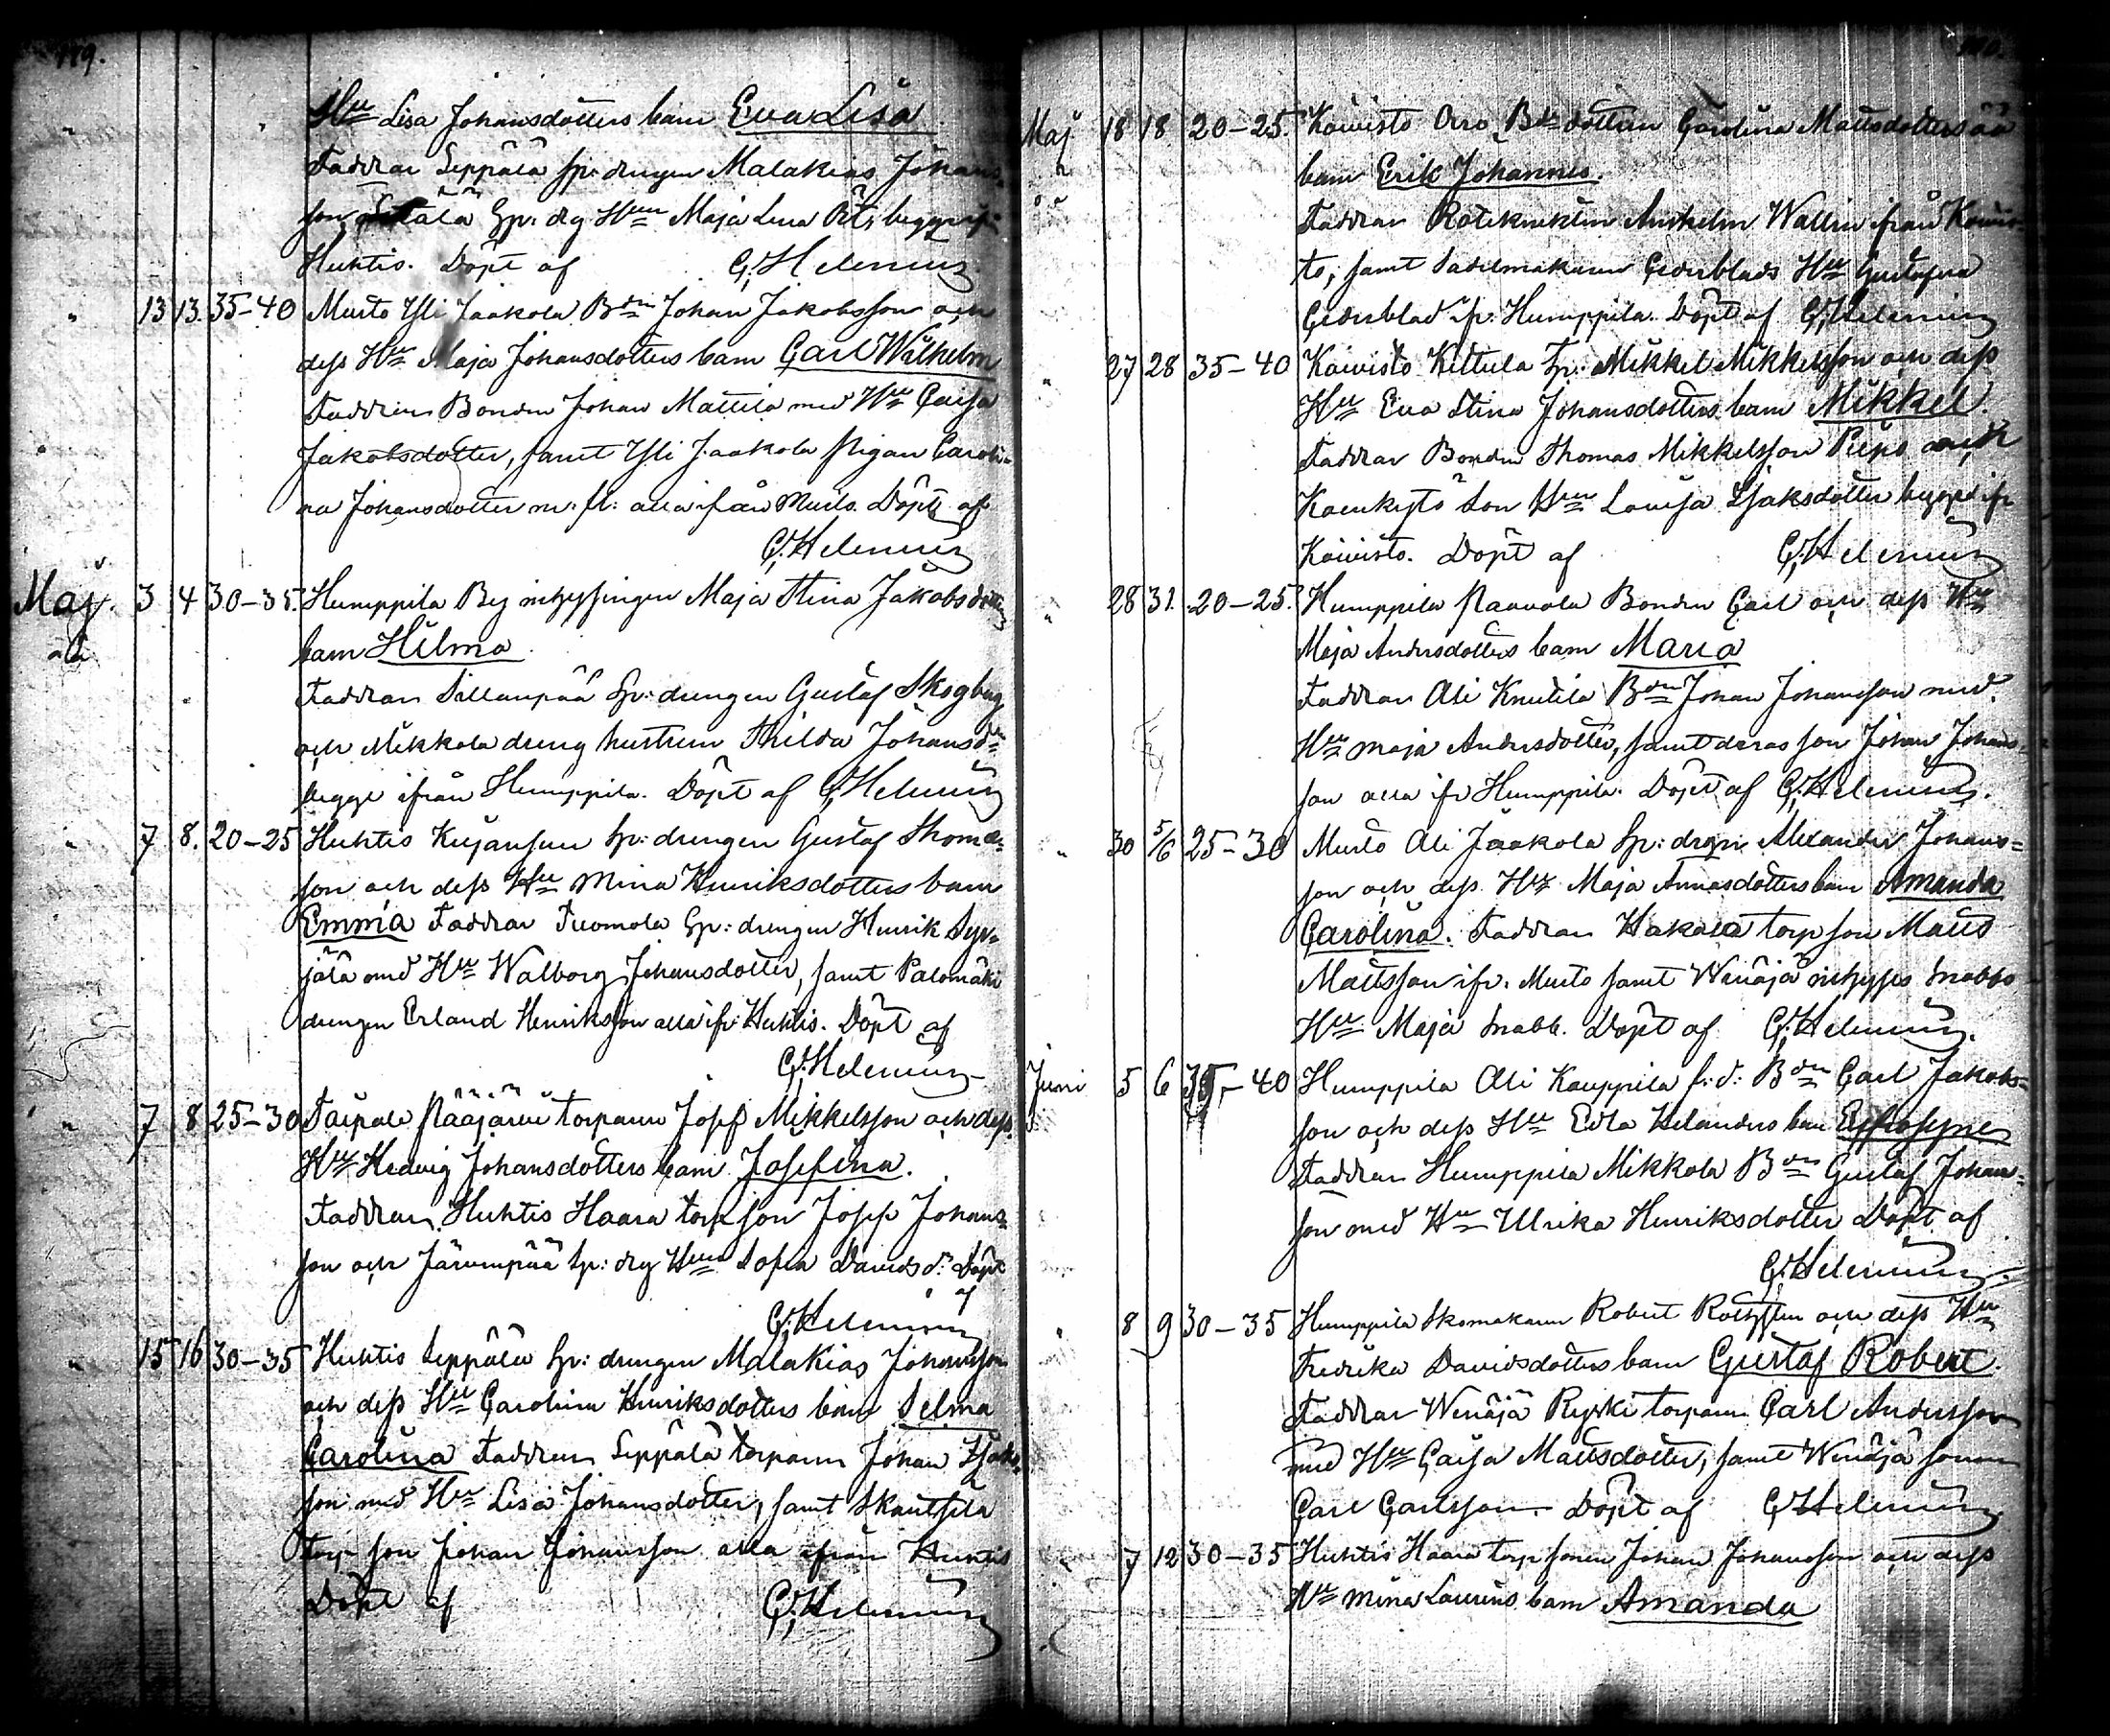 119.
Hu Lisa Johansdotters barn Eva Lisa
Faddrar Seppälä sp: drengen Malakias Johans-
son, Sp: drg Hun Maja Lena begge ifr.
Huhtis. Döpt af G. Helenius
" 13 13. 35-40 Murto Yli Jaakola Bdn Johan Jakobsson och
dess Hu Maja Johansdotters barn Carl Wilhelm
Faddrar Bonden Johan Mattila med Hu Caisa
Jakobsdotter, samt Yli Jaakola pigan Caroli-
na Johansdotter m: fl: alla ifrån Murto. Döpt af
G. Helenius
Maj. 3 4 30-35. Humppila By inhysingen Maja Stina Jakobsdotters
barn Hilma
Faddrar Sillanpää Sp: drengen Gustaf Skogberg
och Mikkola dreng hustrun Thilda Johansdr
begge ifrån Humppila. Döpt af G. Helenius
7 8. 20-25 Huhtis Kujansuu Sp: drengen Gustaf Thomas-
son och dess Hu Mina Henriksdotters barn
Emma Faddrar Tuomola Sp: drengen Henrik Syr-
jälä med Hu Walborg Johansdotter, samt Palomäki
drengen Erland Henriksson alla ifr: Huhtis. Döpt af
G. Helenius
" 7 8 25-30 Taipale Pääjärvi torparen Josef Mikkelsson och dess
Hu Hedvig Johansdotters barn Josefina.
Faddrar, Huhtis Haara torp son Josef Johans-
son och Järvenpää Sp: drg Hun Sofia Davidsd: Döpt
af G. Helenius
" 15 16 30-35 Huhtis Seppälä Sp: drengen Malakias Johansson
och dess Hu Carolina Henriksdotters barn Selma
Carolina Faddrar Seppälä torparen Johan Isaks-
son med Hu Lisa Johansdotter, samt Skantsilä
torp son Johan Johansson alla ifrån Huhtis
Döpt af G. Helenius
Maj 18 18. 20-25. Koivisto Orro Bde dottren Carolina Mattsdotters oä
barn Erik Johannes.
Faddrar Roteknekten Anshelm Wallin ifrån Koivis-
to, samt Sadelmakaren Cederblads Hu Gustafva
Cederblad ifr. Humppila. Döpt af G. Helenius
" 27 28 35-40 Koivisto Kittula Sp: Mikkel Mikkelsson och dess
Hu Eva Stina Johansdotters barn Mikkel.
Faddrar Bonden Thomas Mikkelsson Piips och
son Hun Lovisa Isaksdotter begge ifr
Koivisto. Döpt af G. Helenius
" 28 31. 20-25. Humppila Paavola Bonden Carl och dess Hu
Maja Andersdotters barn Maria
Faddrar Ali Knutila Bdn Johan Johansson med
Hu Maja Andersdotter, samt deras son Johan Johans-
son alla ifr Humppila. Döpt af G. Helenius.
" 30 5/6 25-30 Murto Ali Jaakola Sp: drgn Alexander Johans-
son och dess Hu Maja Annasdotters barn Amanda
Carolina. Faddrar Hakala torp son Matts
Mattsson ifr. Murto samt Wenäjä inhyses Snabbs
Hu Maja Snabb. Döpt af G. Helenius.
Juni 5 6 35-40 Humppila Ali Kauppila f: d: Bdn Carl Jakobs-
son och dess Hu Edla Helanders barn
Faddrar Humppila Mikkola Bdn Gustaf Johans-
son med Hu Ulrika Henriksdotter Döpt af
G. Helenius.
" 8 9 30-35 Humppila Skomakaren Robert och dess Hu
Fredrika Davidsdotters barn Gustaf Robert.
Faddrar Wenäjä Ryski torparen Carl Andersson
med Hu Caisa Mattsdotter, samt Wenäjä sonen
Carl Carlsson. Döpt af G. Helenius.
7 12 30-35 Huhtis Haara torp sonen Johan Johansson och dess
Hu Mina Laurins barn Amanda